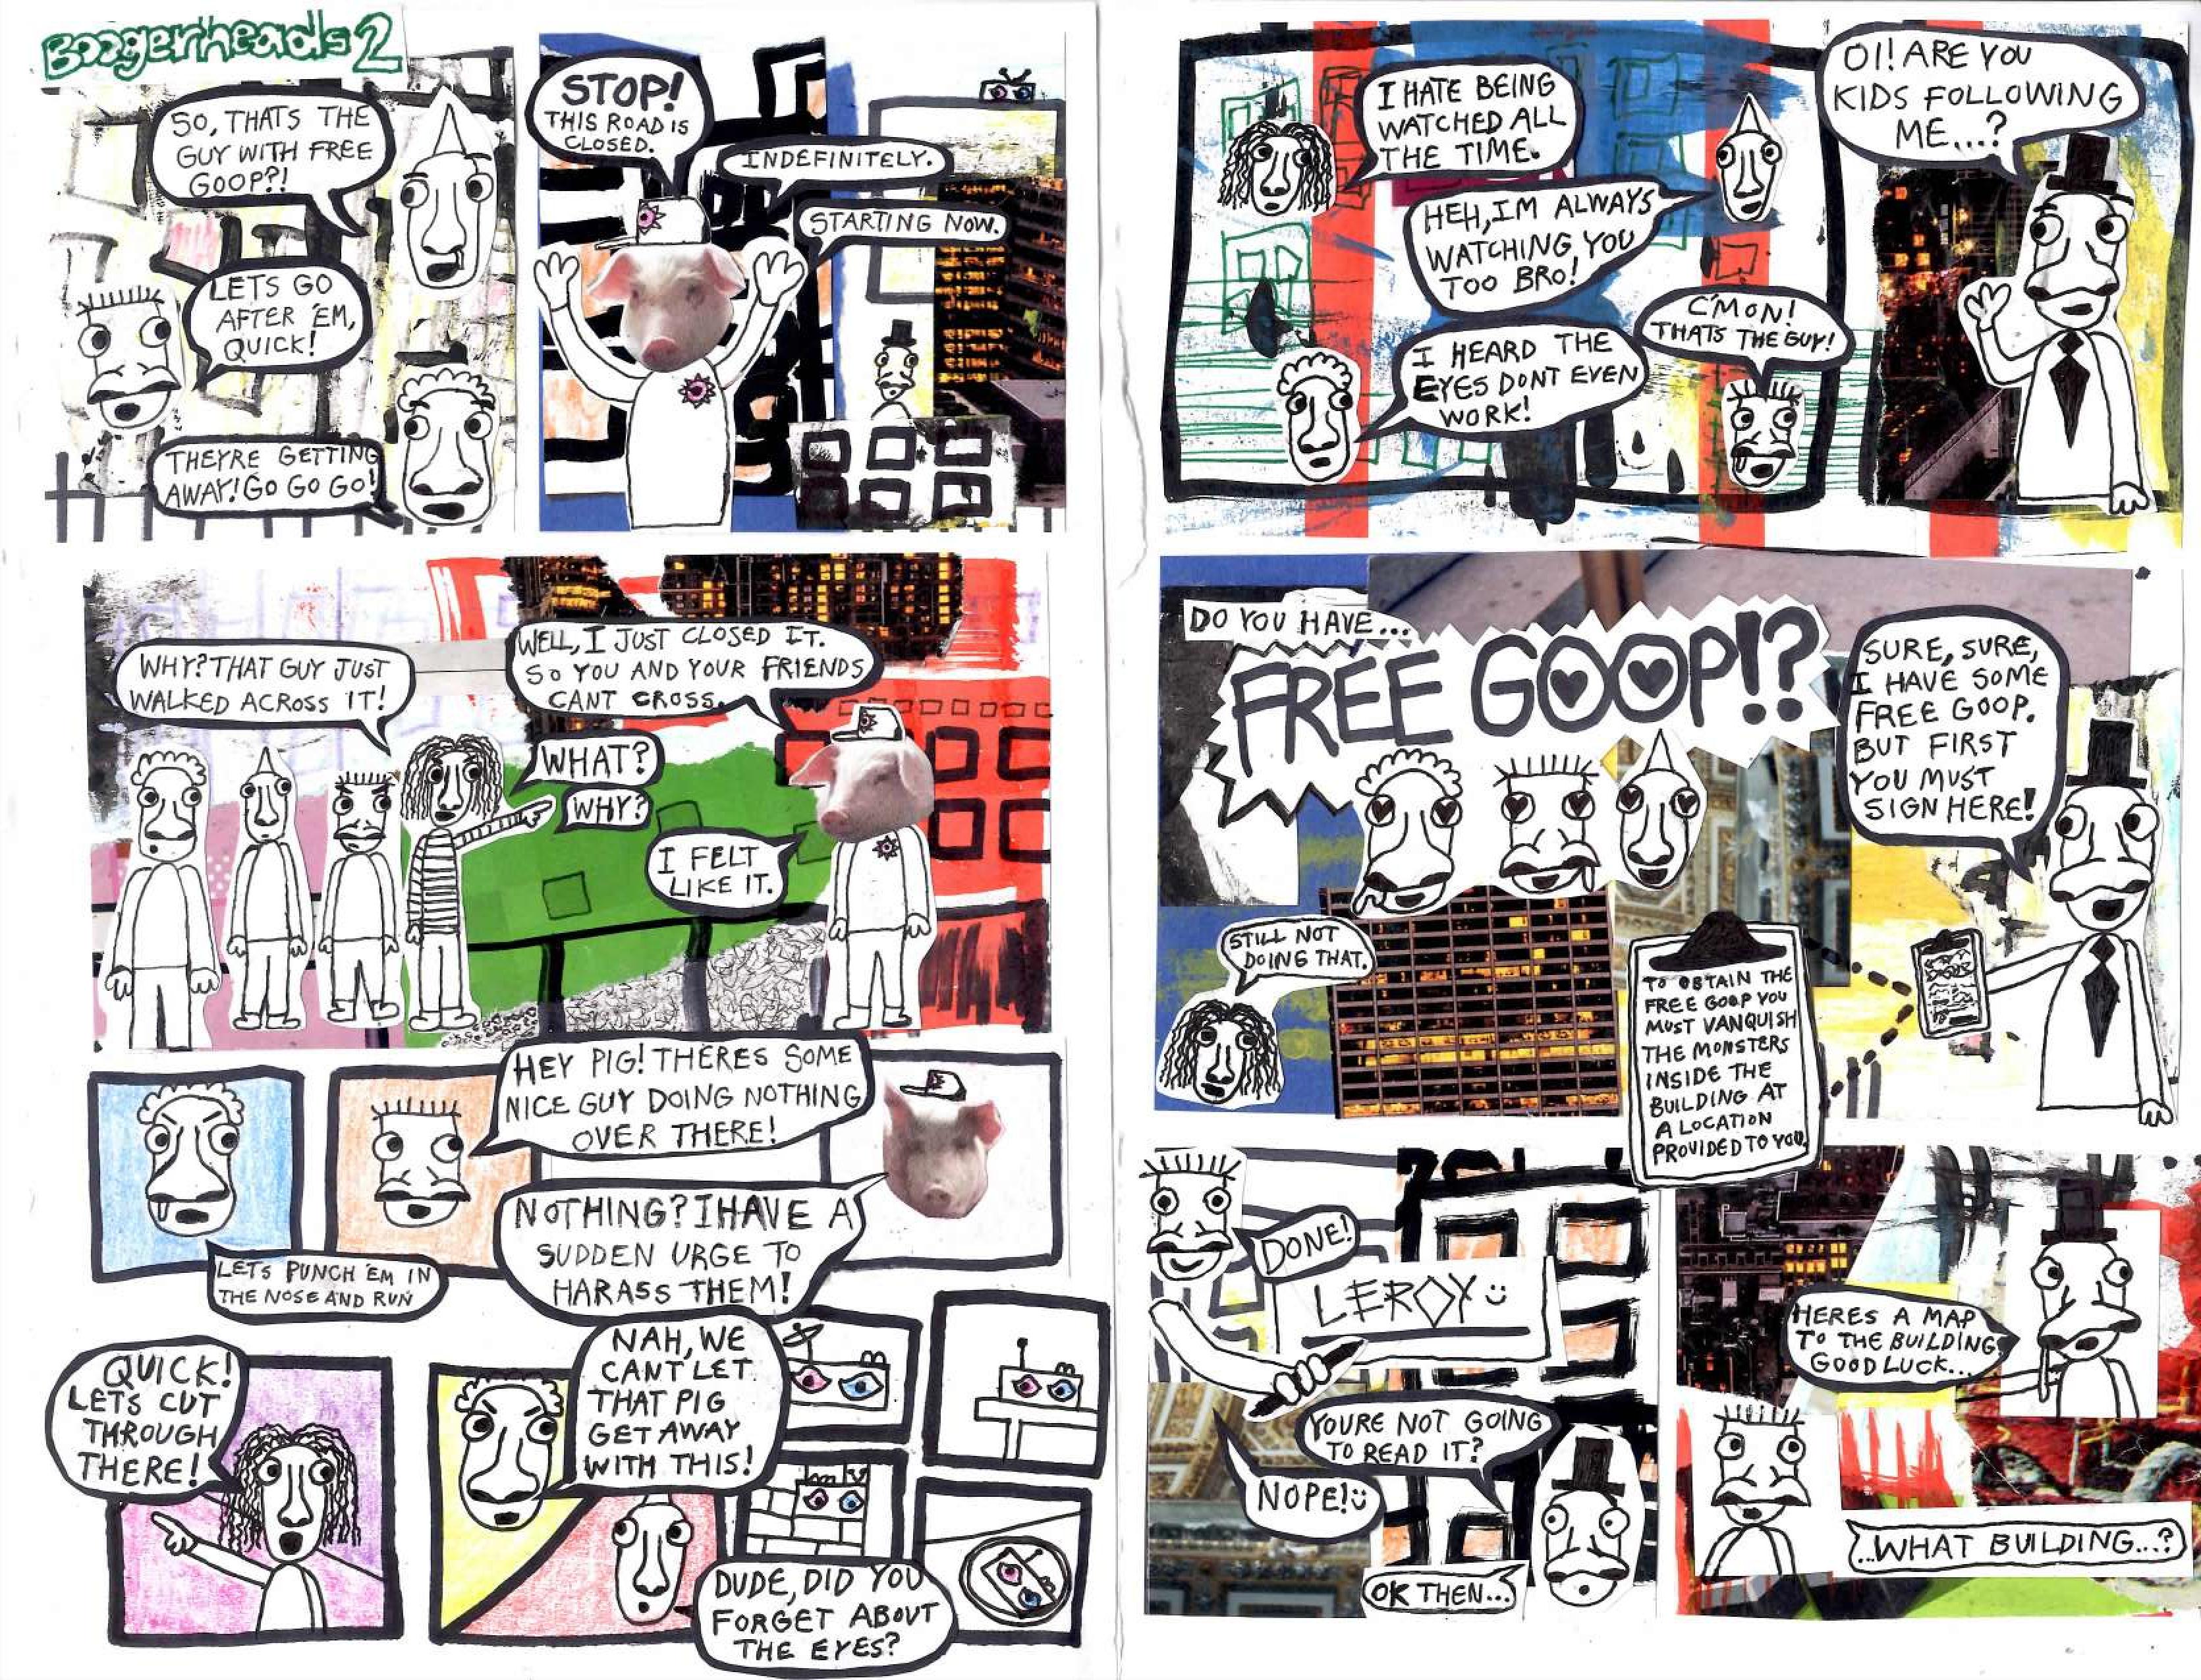 Boogerheads 2
SO, THATS THE
GUY WITH FREE
GOOP?!
LETS GO
AFTER 'EM,
QUICK!
THEYRE GETTING
AWAY! GO GO GO!
STOP!
THIS ROAD IS
CLOSED.
INDEFINITELY.
STARTING NOW.
WHY? THAT GUY JUST
WALKED ACROSS IT!
WELL, I JUST CLOSED IT.
SO YOU AND YOUR FRIENDS
CANT CROSS.
WHAT?
WHY?
I FELT
LIKE IT.
HEY PIG! THERES SOME
NICE GUY DOING NOTHING
OVER THERE!
LETS PUNCH 'EM IN
THE NOSE AND RUN
NOTHING? I HAVE A
SUDDEN URGE TO
HARASS THEM!
QUICK!
LETS CUT
THROUGH
THERE!
NAH, WE
CANT LET
THAT PIG
GET AWAY
WITH THIS!
DUDE, DID YOU
FORGET ABOUT
THE EYES?
I HATE BEING
WATCHED ALL
THE TIME.
HEH, IM ALWAYS
WATCHING, YOU
TOO BRO!
I HEARD THE
EYES DONT EVEN
WORK!
C'MON!
THATS THE GUY!
OI! ARE YOU
KIDS FOLLOWING
ME...?
DO YOU HAVE...
FREE GOOP!?
SURE, SURE,
I HAVE SOME
FREE GOOP.
BUT FIRST
YOU MUST
SIGN HERE!
STILL NOT
DOING THAT.
TO OBTAIN THE
FREE GOOP YOU
MUST VANQUISH
THE MONSTERS
INSIDE THE
BUILDING AT
A LOCATION
PROVIDED TO YOU.
DONE!
LEROY
YOURE NOT GOING
TO READ IT?
NOPE!
OK THEN...
HERES A MAP
TO THE BUILDING
GOOD LUCK...
...WHAT BUILDING...?